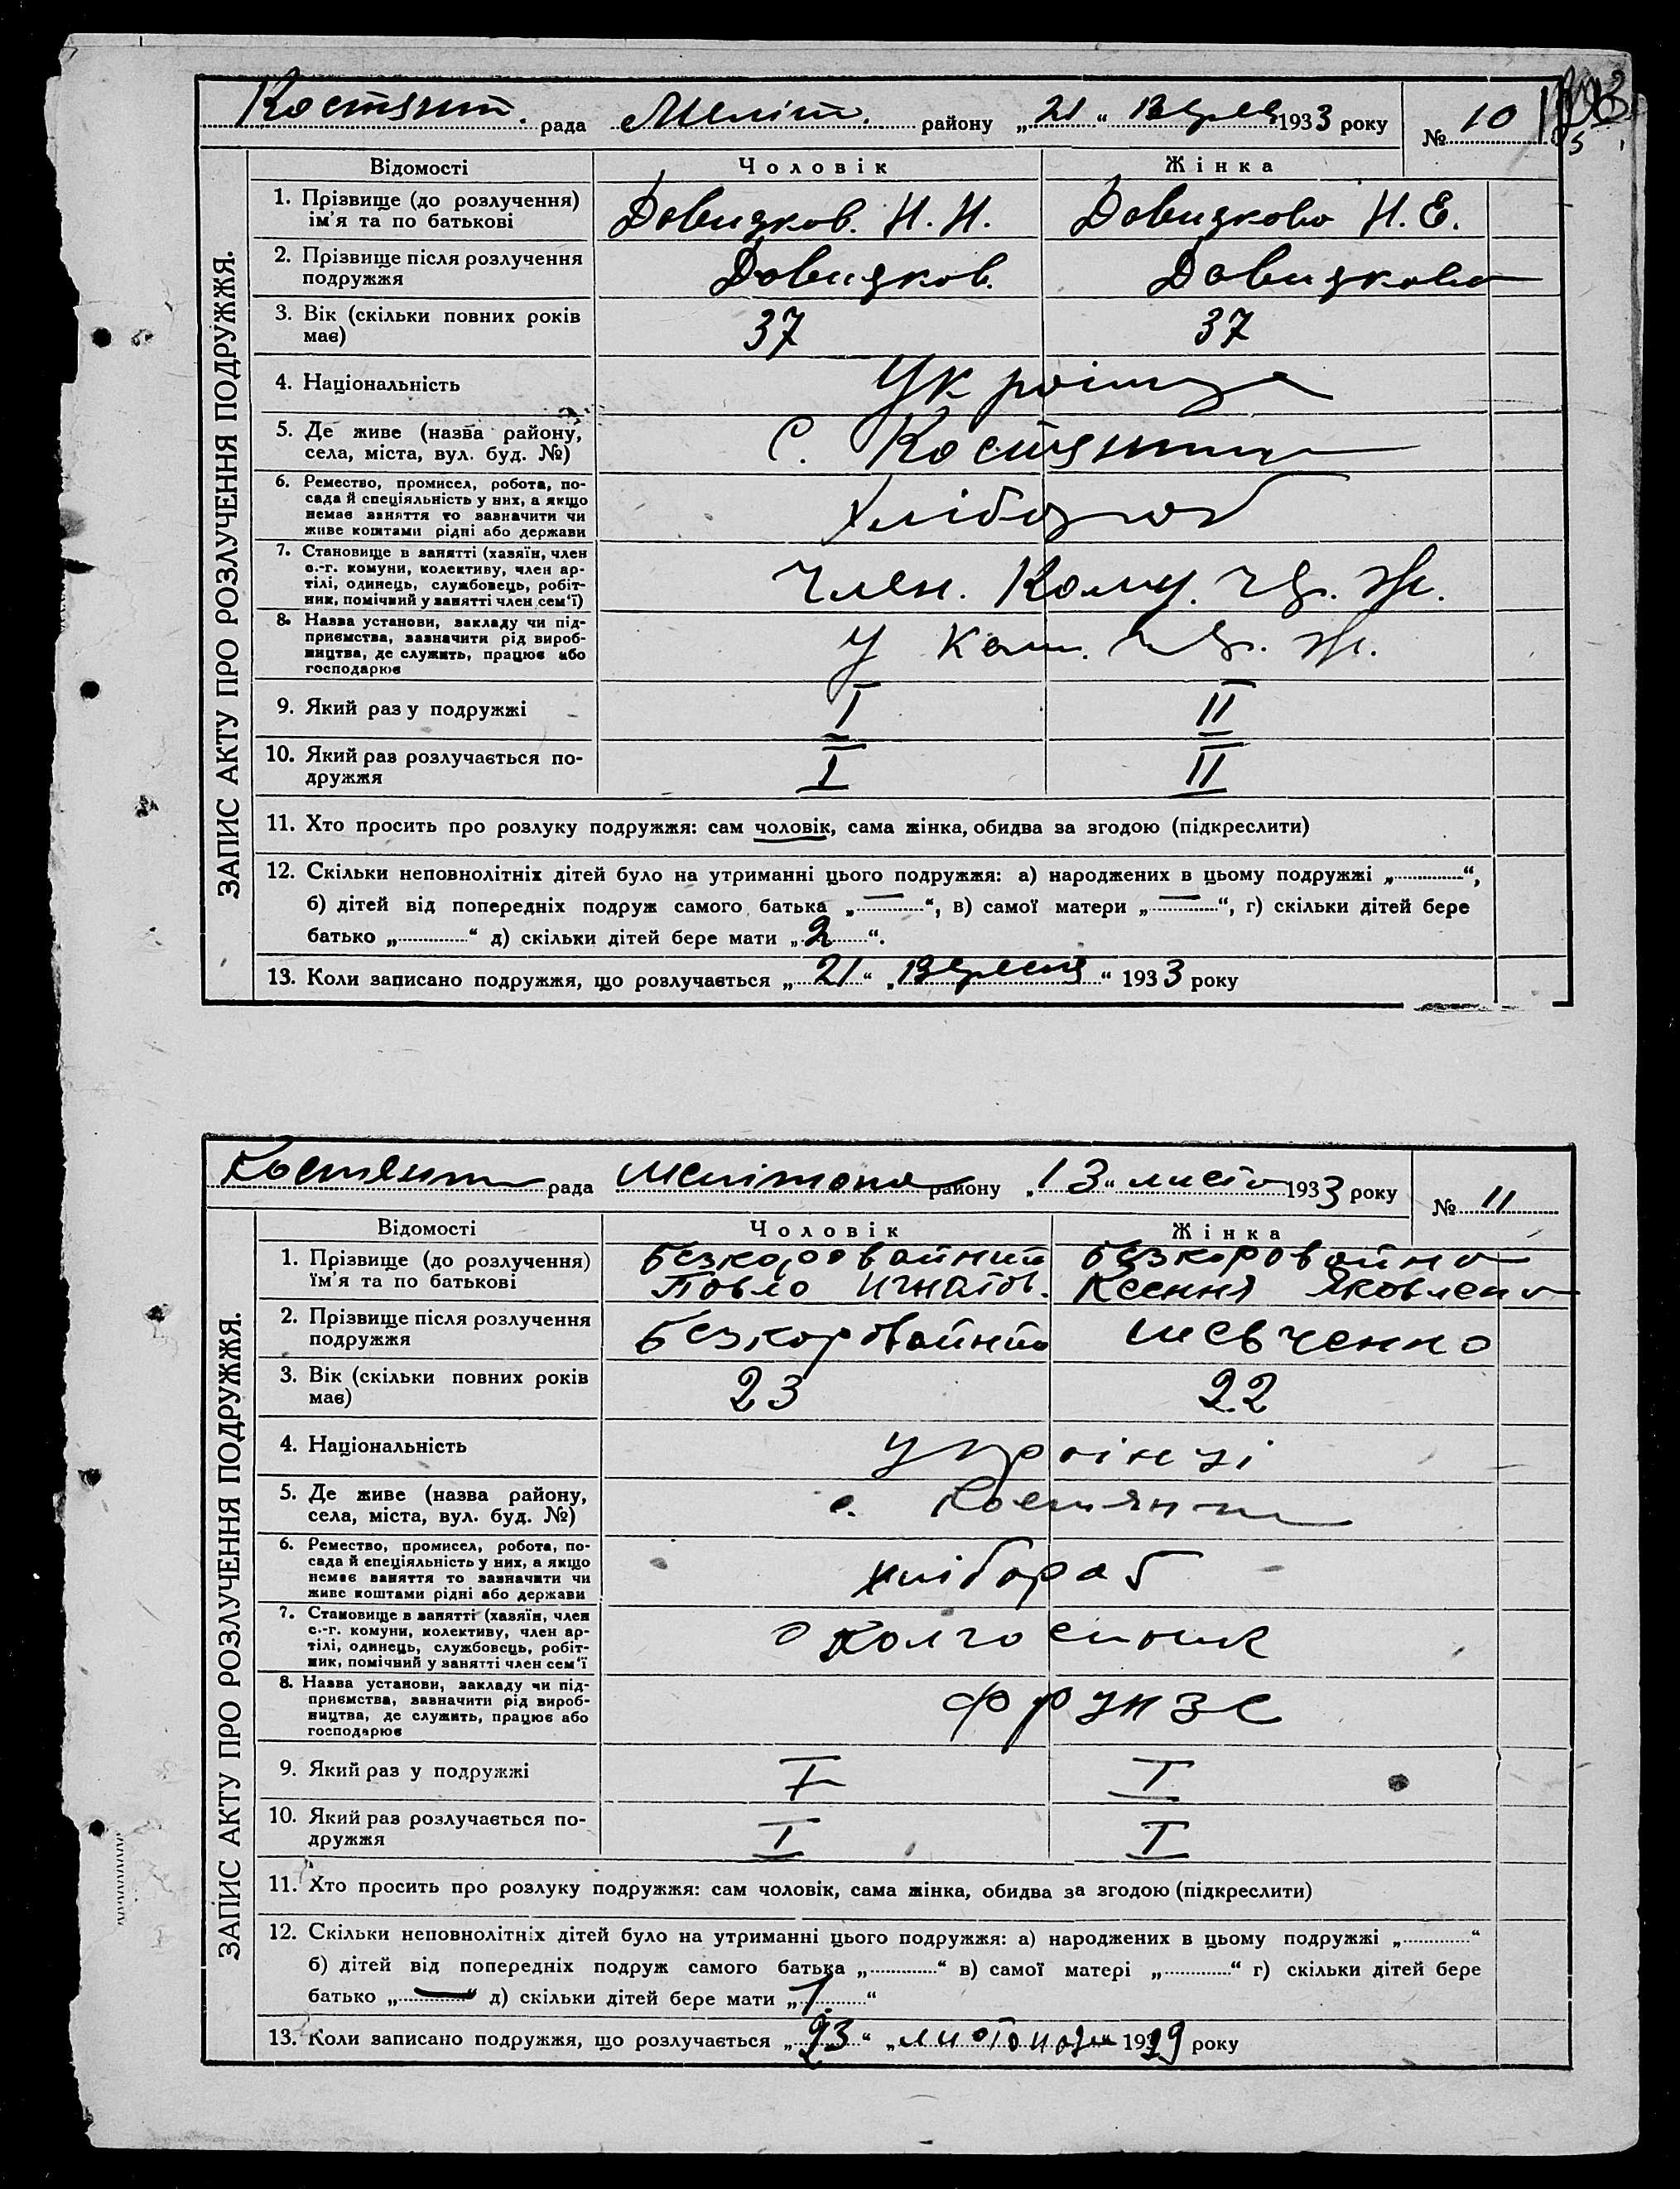 Костянт. рада Меліт. району „21“ Вересн 1933 року № 10
Відомості Чоловік Жінка
ЗАПИС АКТУ ПРО РОЗЛУЧЕННЯ ПОДРУЖЖЯ.
1. Прізвище (до розлучення) Давидков. Н. Н. Давидкова Н. Е.
ім'я та по батькові
2. Прізвище після розлучення Давидков. Давидкова
подружжя
3. Вік (скільки повних років 37 37
має)
4. Національність
5. Де живе (назва району, С.
села, міста, вул. буд. №)
6. Ремество, промисел, робота, по-
сада й спеціяльність у них, а якщо
немає заняття то зазначити чи
живе коштами рідні або держави
7. Становище в занятті (хазяїн, член Член. Кому.
с.-г. комуни, колективу, член ар-
тілі, одинець, службовець, робіт-
ник, помічний у занятті член сем'ї)
8. Назва установи, закладу чи під- у Ком.
приємства, зазначити рід вироб-
ництва, де служить, працює або
господарює
9. Який раз у подружжі I II
10. Який раз розлучається по- I II
дружжя
11. Хто просить про розлуку подружжя: сам чоловік, сама жінка, обидва за згодою (підкреслити)
12. Скільки неповнолітніх дітей було на утриманні цього подружжя: а) народжених в цьому подружжі „ “,
б) дітей від попередніх подруж самого батька „—“, в) самої матери „—“, г) скільки дітей бере
батько „ “ д) скільки дітей бере мати „2“.
13. Коли записано подружжя, що розлучається „21“ „Вересня“ 1933 року
рада району „13“ листо 1933 року № 11
Відомості Чоловік Жінка
ЗАПИС АКТУ ПРО РОЗЛУЧЕННЯ ПОДРУЖЖЯ.
1. Прізвище (до розлучення) Безкоровайний Безкоровайна
їм'я та по батькові Павло Игнатов. Ксенния Яковлена
2. Прізвище після розлучення Безкоровайний Шевченко
подружжя
3. Вік (скільки повних років 23 22
має)
4. Національність українці
5. Де живе (назва району, с.
села, міста, вул. буд. №)
6. Ремество, промисел, робота, по- хлібораб
сада й спеціяльність у них, а якщо
немає заняття то зазначити чи
живе коштами рідні або держави
7. Становище в занятті (хазяїн, член колгоспник
с.-г. комуни, колективу, член ар-
тілі, одинець, службовець, робіт-
ник, помічний у занятті член сем'ї
8. Назва установи, закладу чи під- Фрунзе
приємства, зазначити рід вироб-
ництва, де служить, працює або
господарює
9. Який раз у подружжі I I
10. Який раз розлучається по- I I
дружжя
11. Хто просить про розлуку подружжя: сам чоловік, сама жінка, обидва за згодою (підкреслити)
12. Скільки неповнолітніх дітей було на утриманні цього подружжя: а) народжених в цьому подружжі „ “
б) дітей від попередніх подруж самого батька „ “ в) самої матері „ “ г) скільки дітей бере
батько „—“ д) скільки дітей бере мати „1.“
13. Коли записано подружжя, що розлучається „23“ „листопада 1929 року